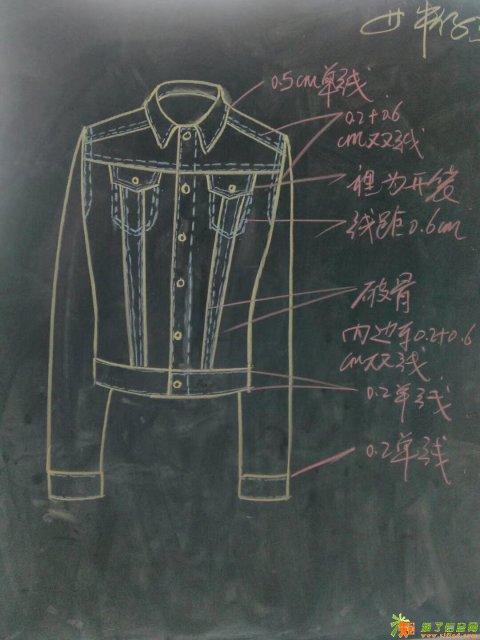 女牛仔
0.5cm单线
0.2+0.6
cm双线
裡为开袋
线距0.6cm
破骨
内边车0.2+0.6
cm双线
0.2单线
0.2单线